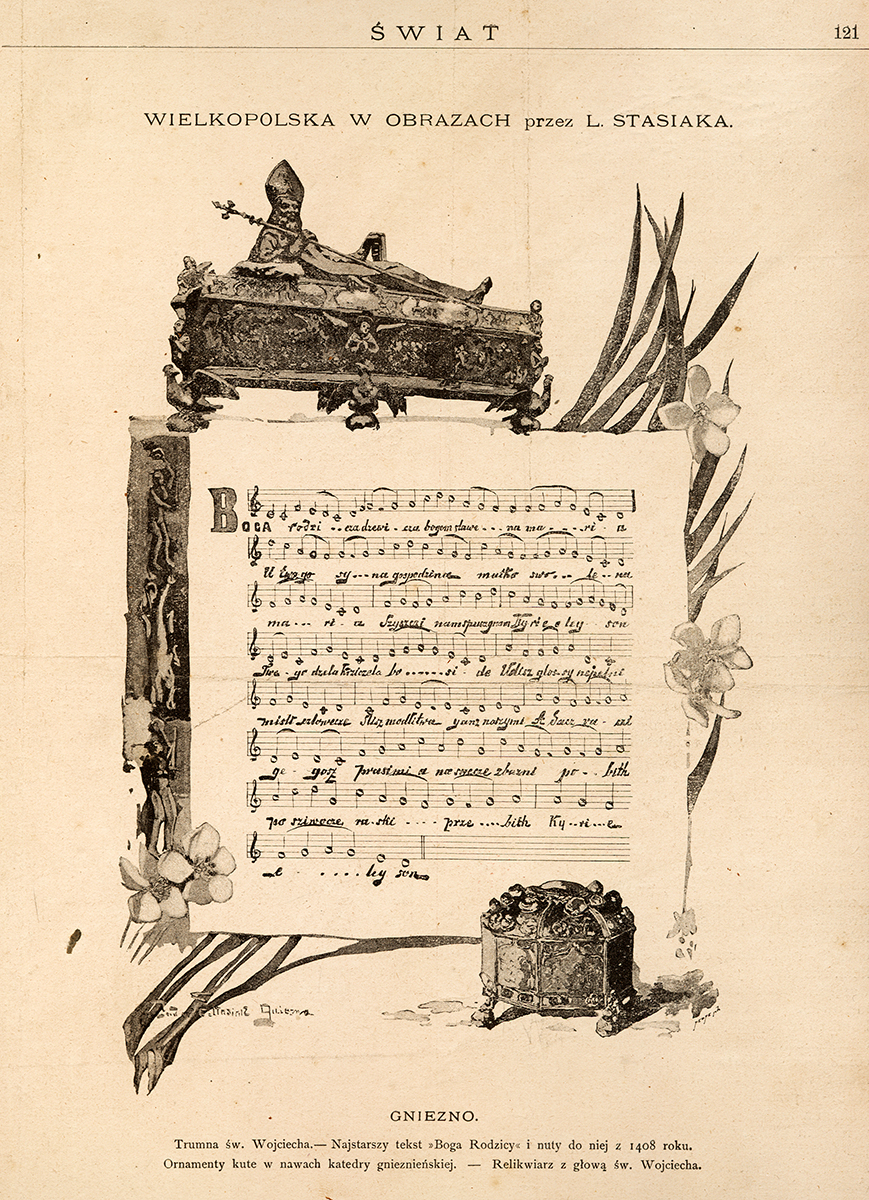 ŚWIAT
121
WIELKOPOLSKA W OBRAZACH przez L. STASIAKA.
BOGA rodzi . . cza dzewi - cza bogom slawe - - - na ma - - - ri - a
U twego sy - - - na gospodzina matko swo - . - le - na
ma - - ri - a Szyszczi nam spuczynam Ky ri e e ley son
Twe - go dzela krzcziela bo . . . . . . . si - de Uslisz glos - sy napelni
misli człowecze Slisz modlitwa yanz noszymi A dacz ra - czi
ge - gosz prosimi a na swecze zbozni po - - bith
po sziwocze ra - ski - - - - prze - - - - bith Ky - ri - e
e - . . . . ley son
Stasiak Gniezno
GNIEZNO.
Trumna św. Wojciecha.— Najstarszy tekst »Boga Rodzicy« i nuty do niej z 1408 roku.
Ornamenty kute w nawach katedry gnieźnieńskiej. — Relikwiarz z głową św. Wojciecha.